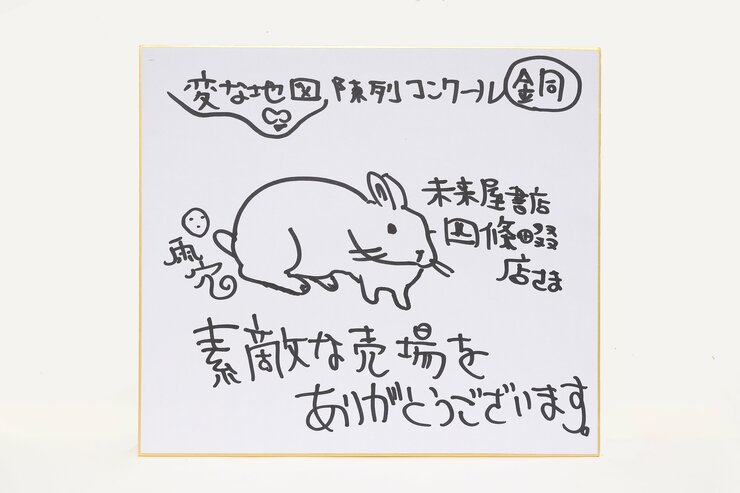 変な地図 陳列コンクール 銅
未来屋書店
四條畷
店さま
雨穴
素敵な売場を
ありがとうございます。